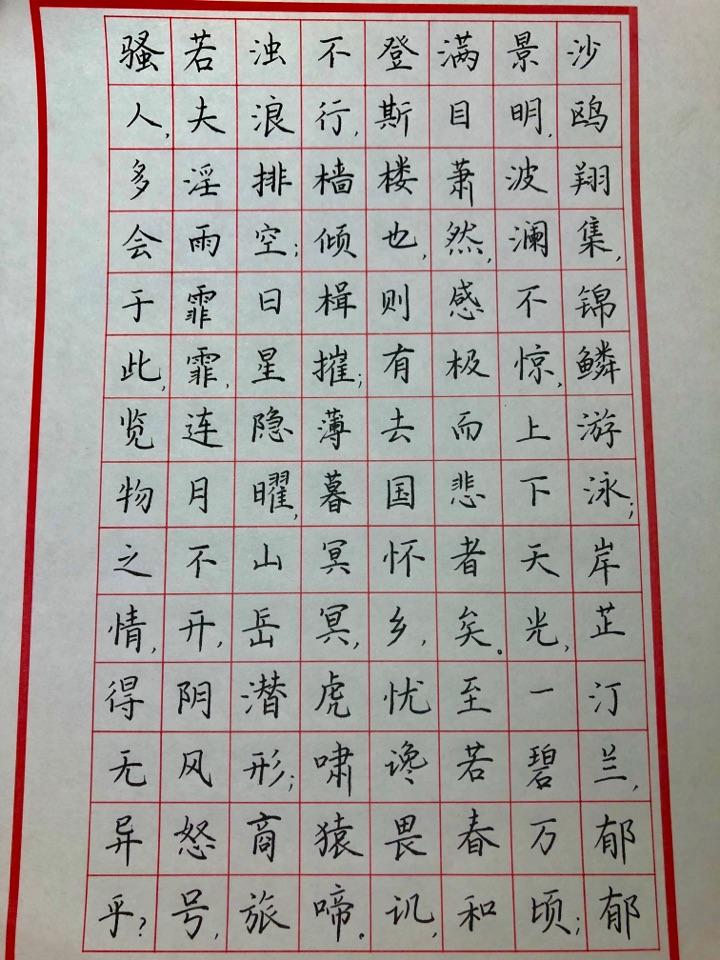 骚人,多会于此,览物之情,得无异乎?
若夫淫雨霏霏,连月不开,阴风怒号,
浊浪排空;日星隐曜,山岳潜形;商旅
不行,樯倾楫摧;薄暮冥冥,虎啸猿啼。
登斯楼也,则有去国怀乡,忧谗畏讥,
满目萧然,感极而悲者矣。至若春和
景明,波澜不惊,上下天光,一碧万顷;
沙鸥翔集,锦鳞游泳;岸芷汀兰,郁郁